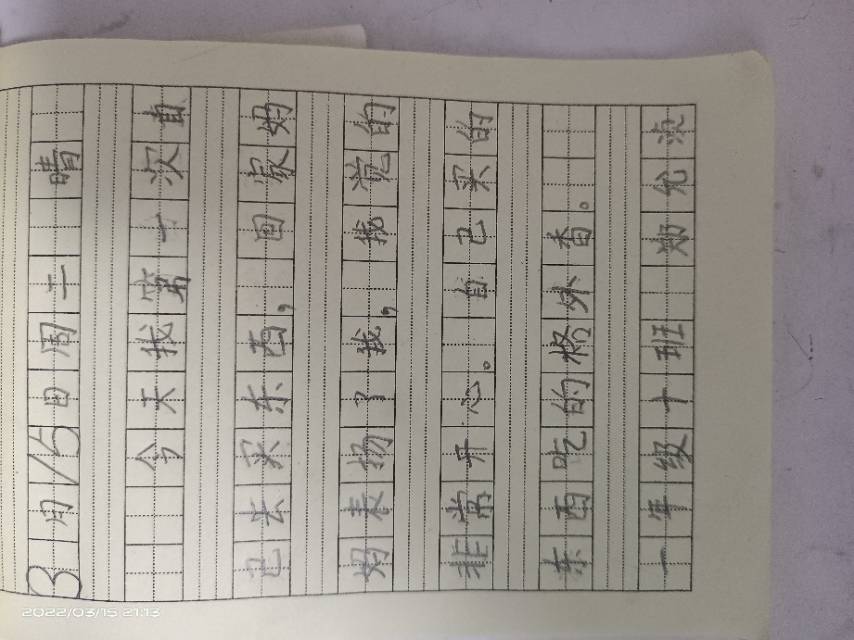 3月15日周二 晴
今天我第一次自
己去买东西，回家妈
妈表扬了我，我觉的
非常开心。自己买的
东西吃的格外香。
一年级十班 允浈
2022/03/15 21:13